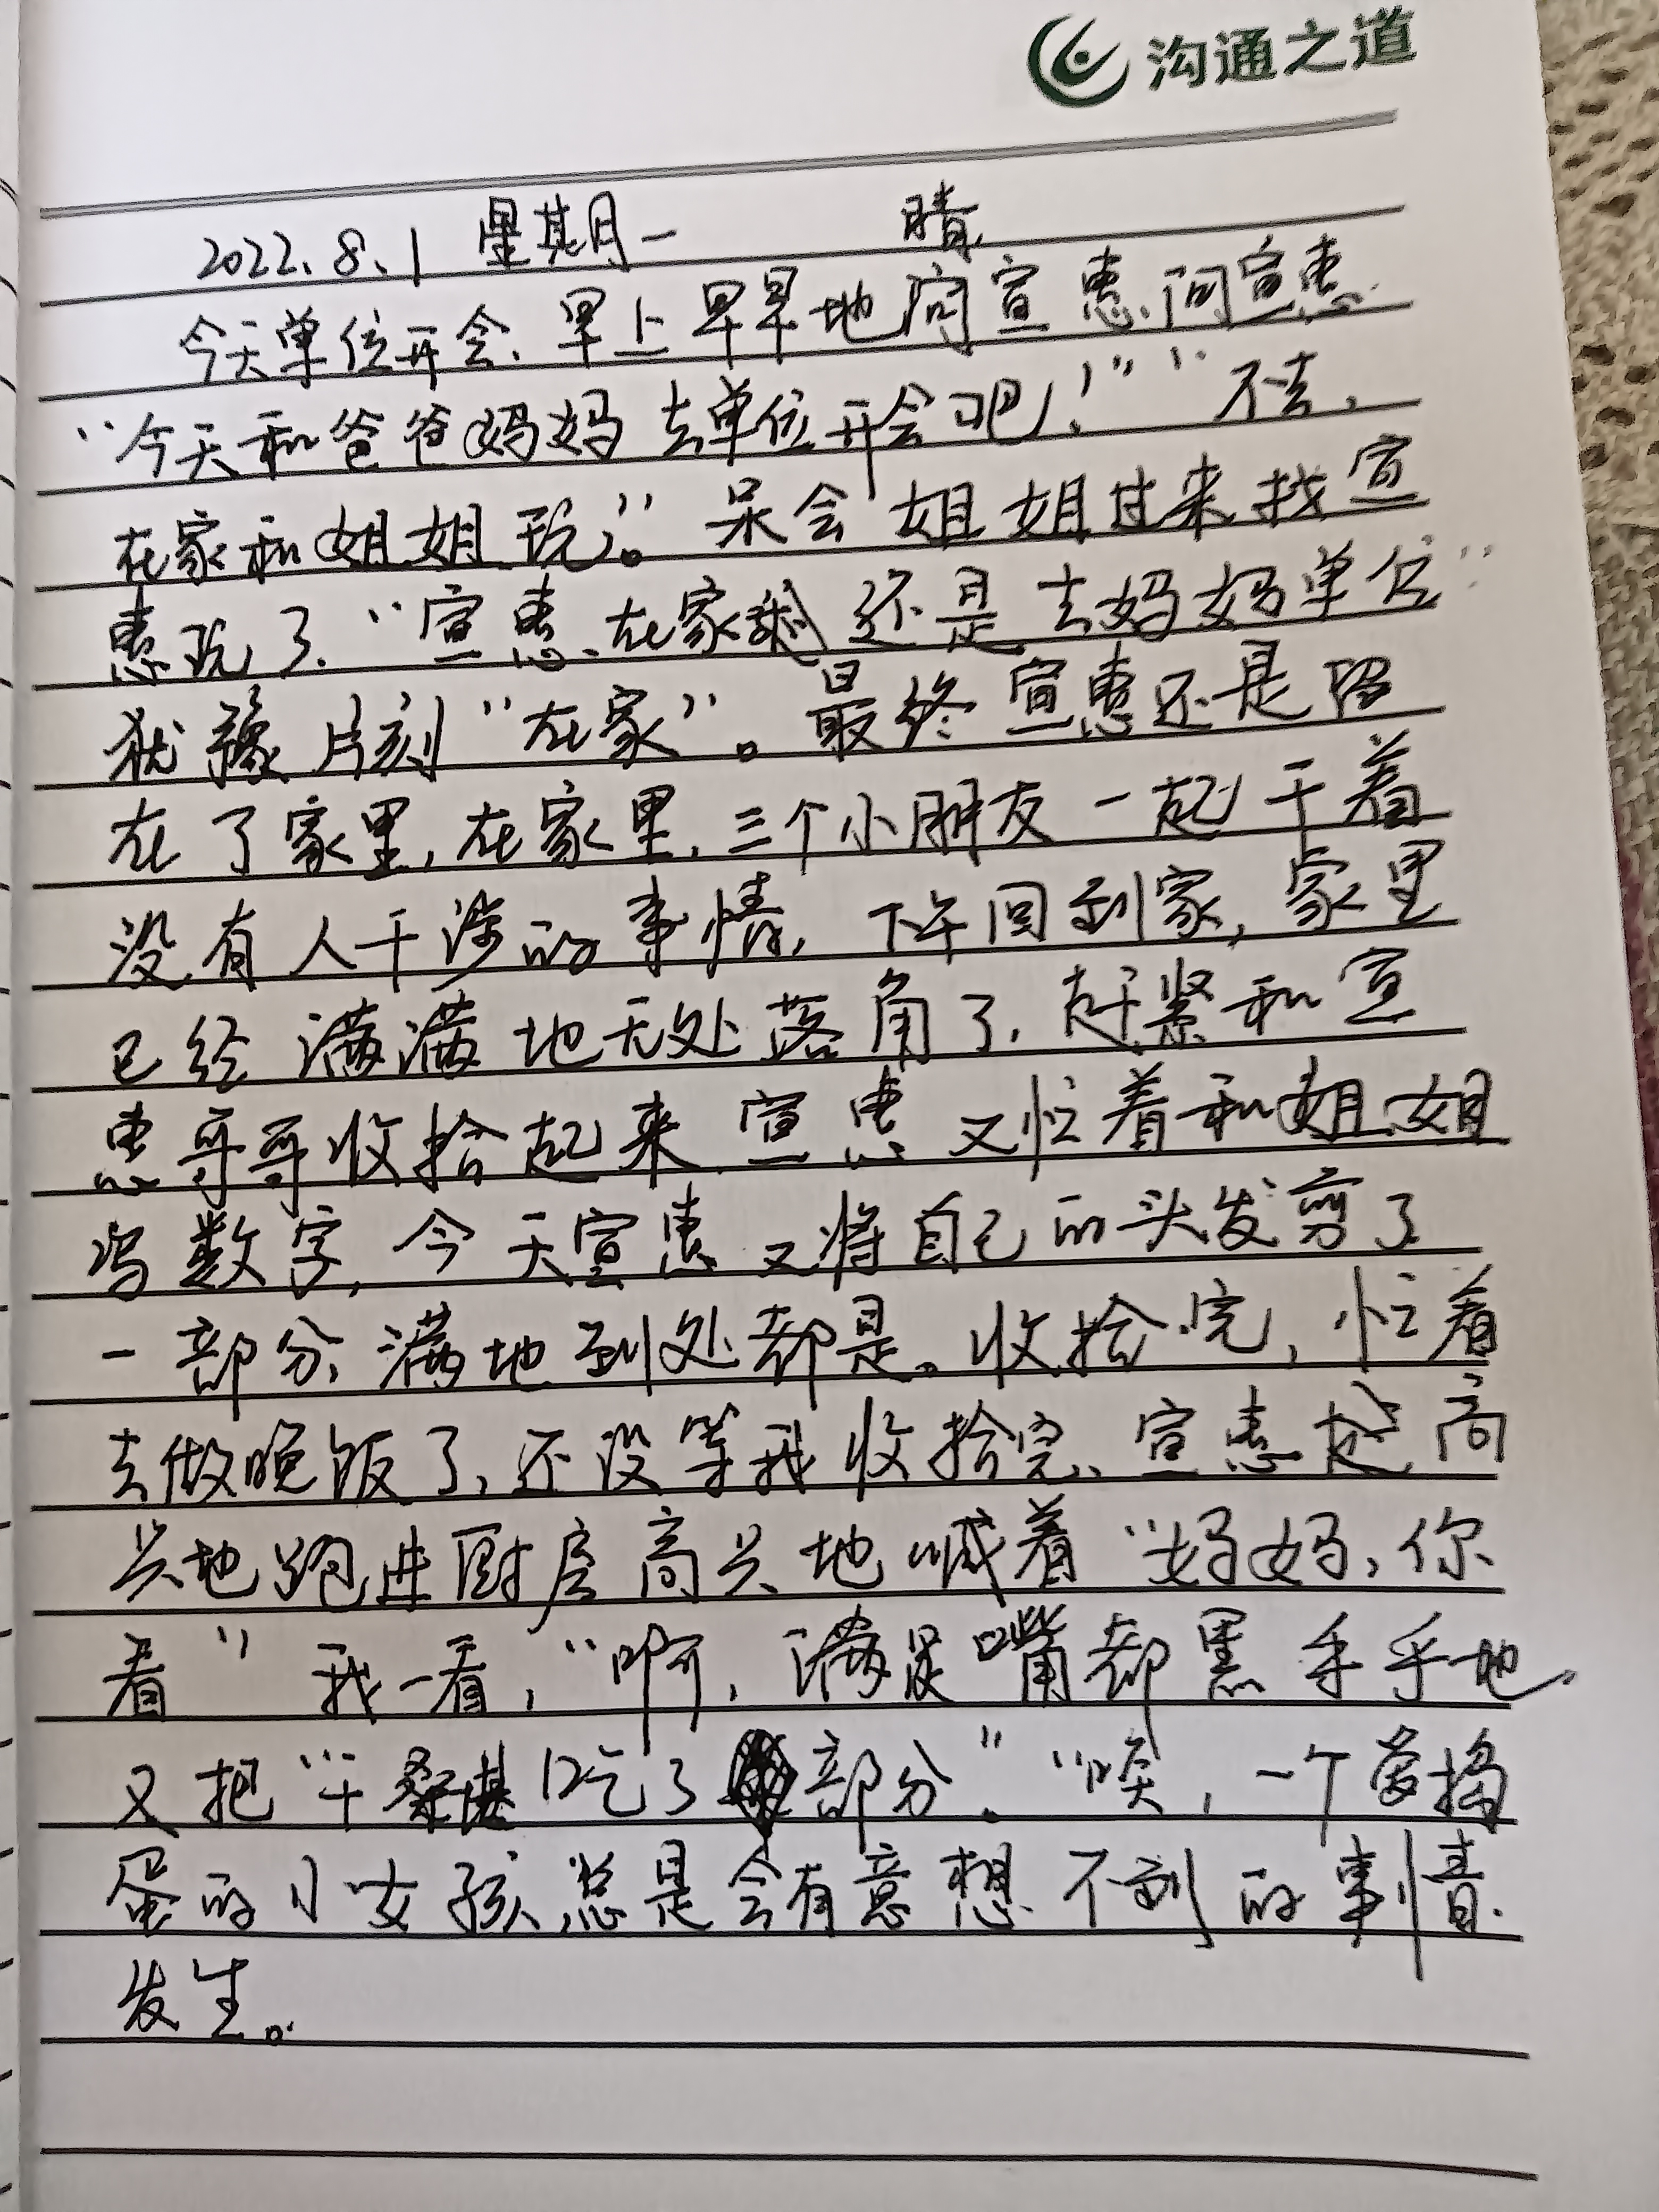 沟通之道
2022.8.1 星期一 晴
今天单位开会、早上早早地问宣惠、问宣惠
“今天和爸爸妈妈去单位开会吧！”“不去,
在家和姐姐玩。”呆会姐姐过来找宣
惠玩了.“宣惠、在家 还是去妈妈单位”
犹豫片刻“在家”。最终宣惠还是留
在了家里,在家里,三个小朋友一起干着
没有人干涉的事情,下午回到家,家里
已经满满地无处落角了,赶紧和宣
惠哥哥收拾起来,宣惠又忙着和姐姐
写数字,今天宣惠又将自己的头发剪了
一部分,满地到处都是。收拾完,忙着
去做晚饭了,还没等我收拾完、宣惠 高
兴地跑进厨房高兴地喊着“妈妈,你
看”我一看,“啊,满是嘴都黑乎乎地,
又把“干桑椹吃了 部分。”“唉,一个爱捣
蛋的小女孩,总是会有意想不到的事情
发生。